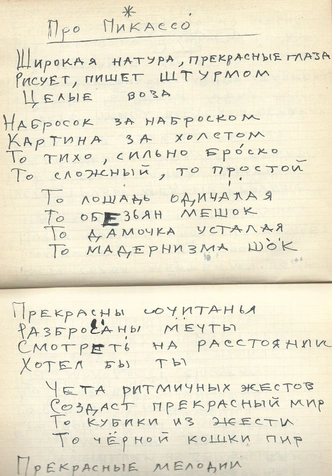 *
Про Пикассо́
Широкая натура, прекрасные глаза
Рисует, пишет штурмом
Целые воза
Набросок за наброском
Картина за холстом
То тихо, сильно бро́ско
То сложный, то простой
То лошадь одичалая
То обезьян мешок
То дамочка усталая
То мадернизма шок
Прекрасны соуитанья
Разбросаны мечты
Смотреть на расстоянии
Хотел бы ты
Чета ритмичных жестов
Создаст прекрасный мир
То кубики из жести
То чёрной кошки пир
Прекрасные мелодии